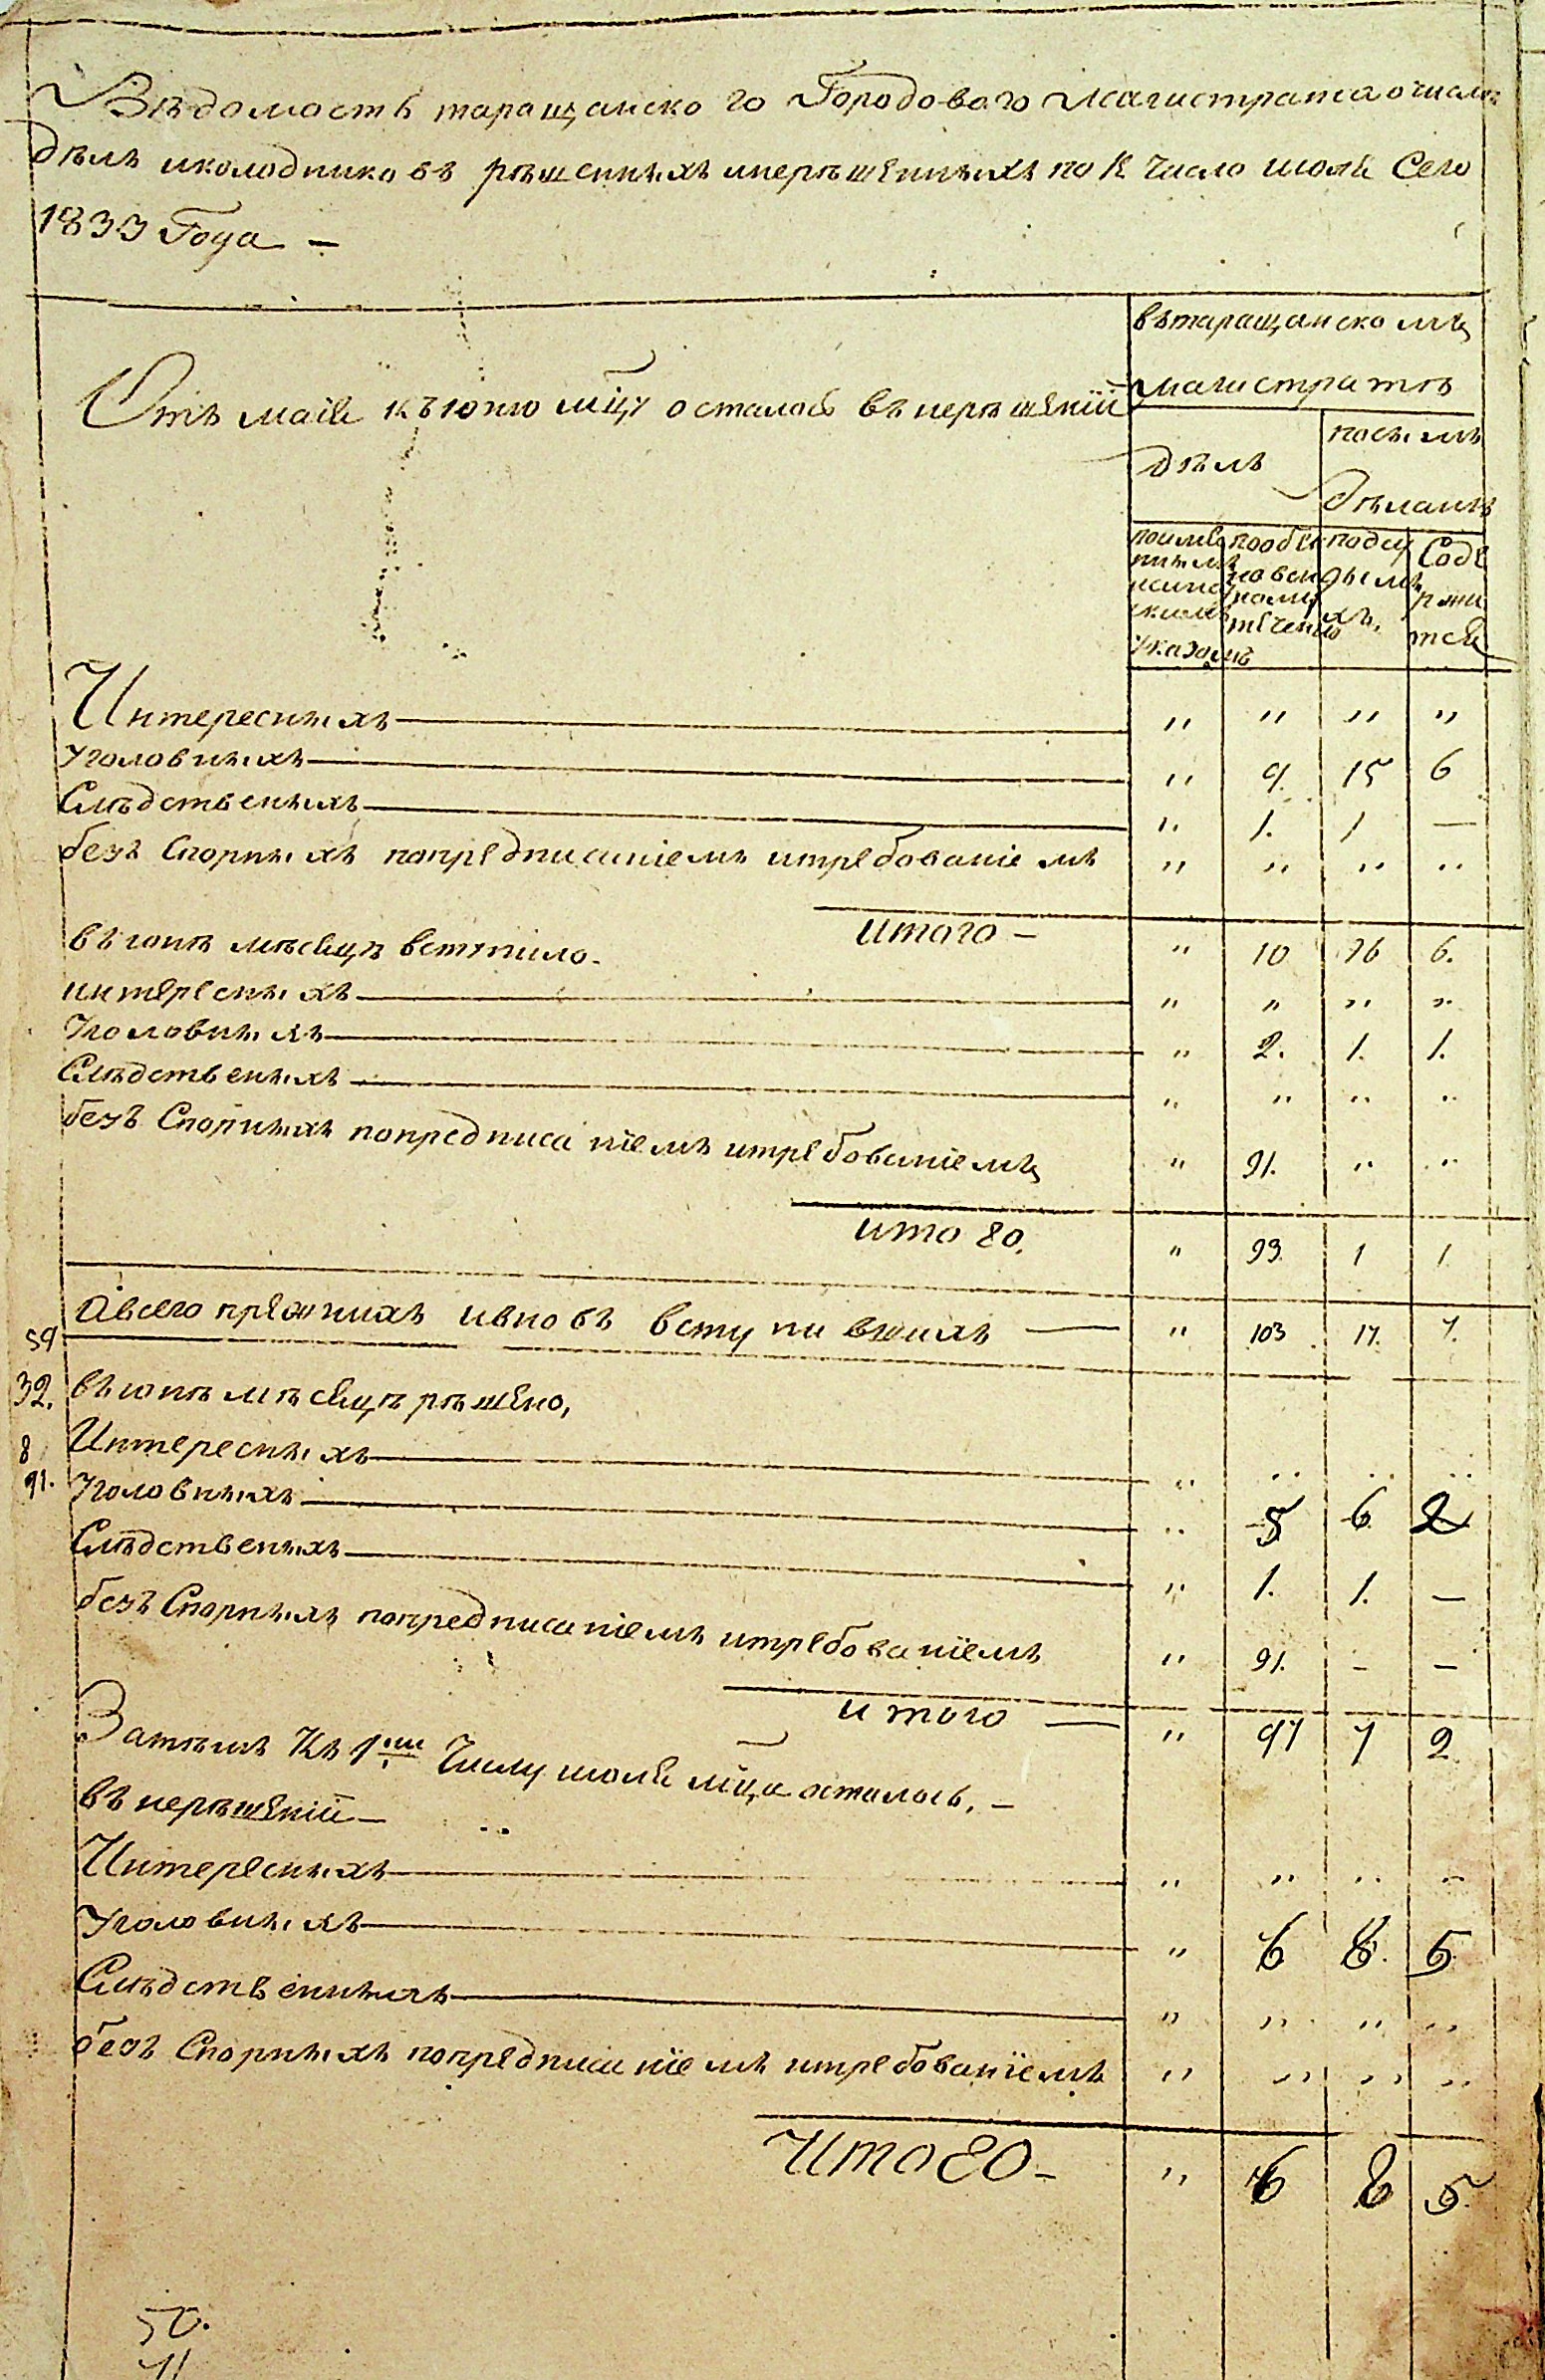 Вѣдомость таращанского Городоваго Магистрата о числѣ
дѣлъ иколодниковъ рѣшенныхъ инерѣшенныхъ по 1е число июля Сего
1833 Года —
вътаращанскомъ
магистратѣ
Отъ маія къ юню мцу осталось внерѣшеніи
дѣлъ
посимъ
дѣламъ
поимя
ннымъ
указомъ
пообык
новен
ному
теченію
подсу
димы
хъ,
Соде
ржи
тся
Интересныхъ — „ „ „ „
уголовныхъ — „ 9. 15 6
Слѣдственыхъ — „ 1. 1 —
безъ Спорныхъ попредписаніемъ итребованіемъ „ „ „ „
Итого — „ 10 16 6.
въ юнѣ мѣсяцѣ вступило.
интересныхъ — „ „ „ „
уголовныхъ — „ 2. 1. 1.
Слѣдственыхъ — „ „ „ „
безъ Спорныхъ попредписаніемъ итребованіемъ „ 91. „ „
итого. „ 93. 1 1
Авсего прежнихъ ивновь вступившихъ — „ 103 17. 7.
59
32. въ юнѣ мѣсяцѣ рѣшено,
8 Интересныхъ — „ „ „ „
91. уголовныхъ — „ 5 6 2
Слѣдственыхъ — „ 1. 1. —
безъ Спорныхъ попредписаніемъ итребованіемъ „ 91. — —
итого — „ 97 7 2
Затѣмъ Къ 1му Числу июля мца осталось, —
въ нерѣшеніи —
Интересныхъ — „ „ „ „
уголовныхъ — „ 6 8. 5
Слѣдственныхъ — „ „ „ „
безъ Спорныхъ попредписаніемъ итребованіемъ „ „ „ „
Итого — „ 6 8 5.
50.